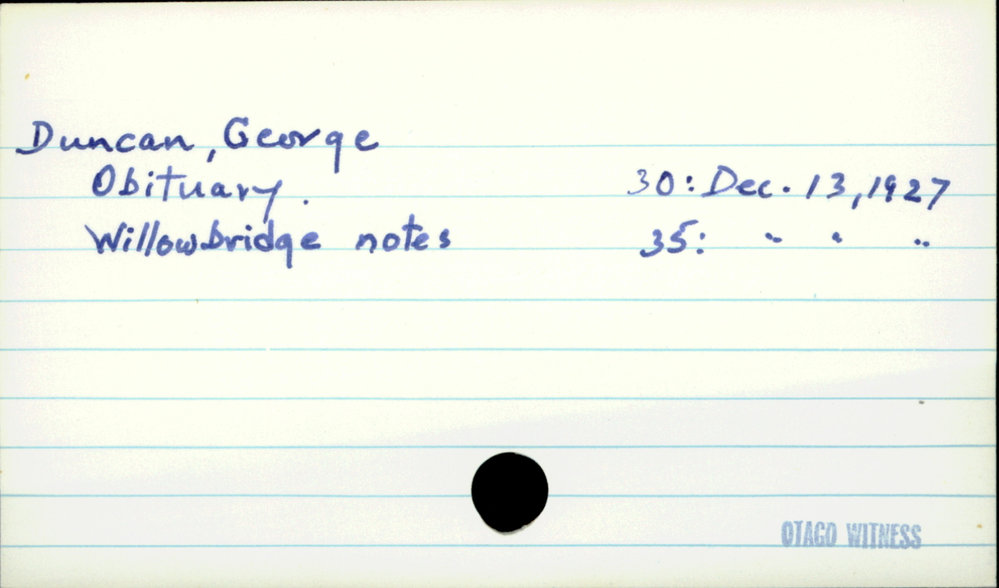 Duncan, George
Obituary. 30: Dec. 13, 1927
Willowbridge notes 35: " " "
OTAGO WITNESS